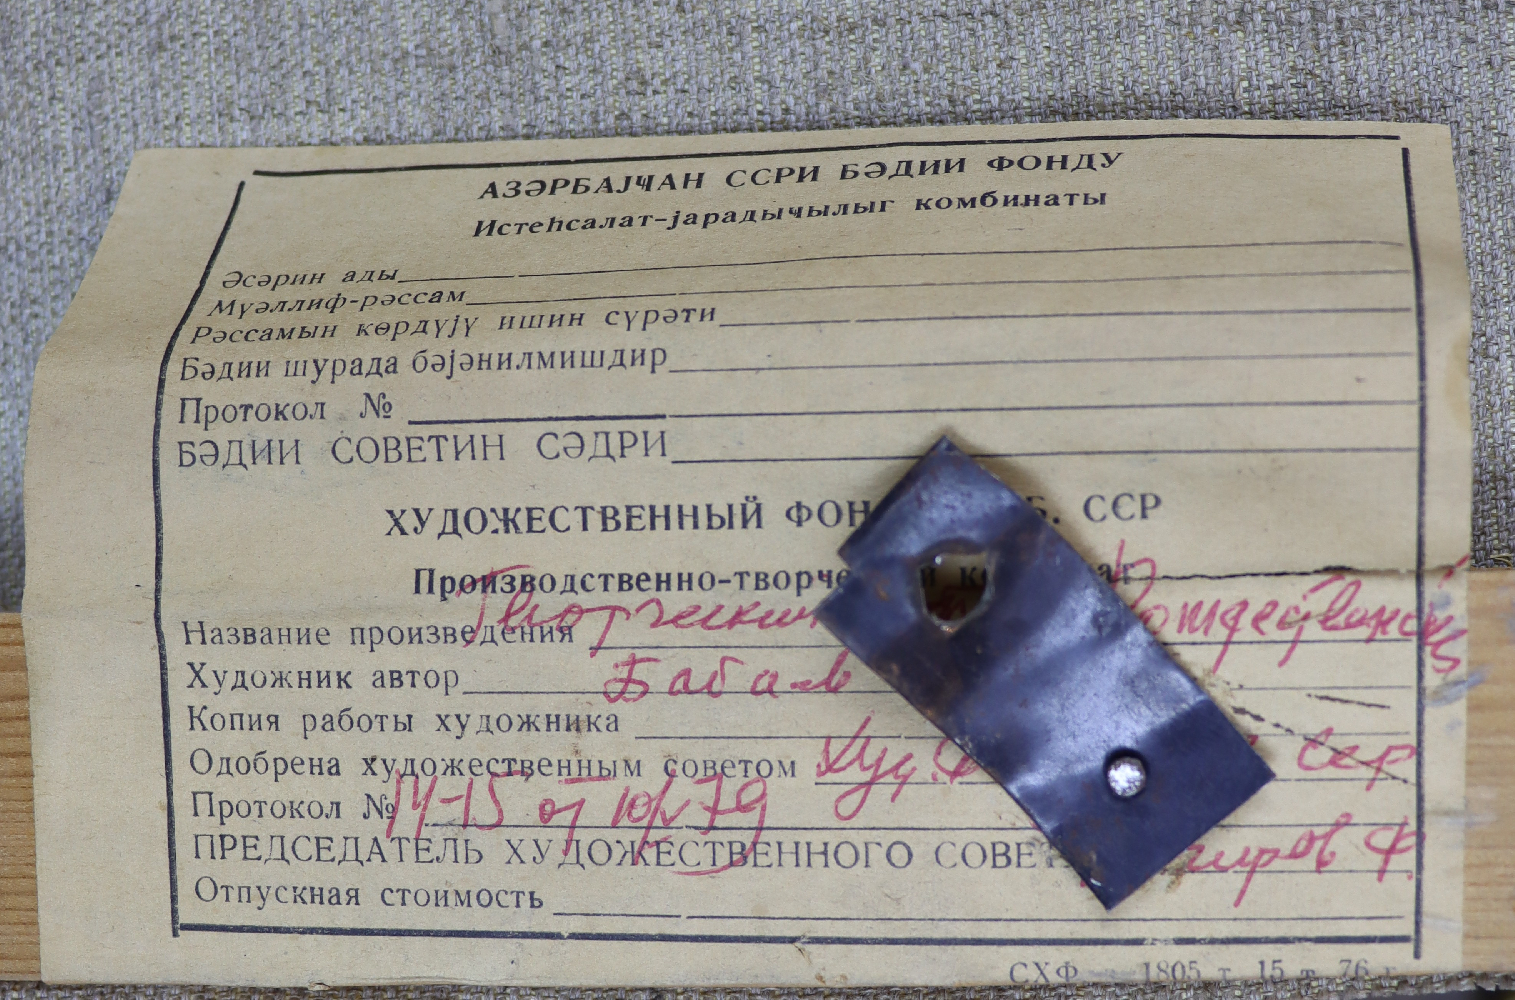 АЗӘРБАЈҸАН ССРИ БӘДИИ ФОНДУ
Истеһсалат-јарадычылыг комбинаты
Әсәрин ады
Мүәллиф-рәссам
Рәссамын көрдүјү ишин сүрәти
Бәдии шурада бәјәнилмишдир
Протокол №
БӘДИИ СОВЕТИН СӘДРИ
ХУДОЖЕСТВЕННЫЙ ФОН Б. ССР
Производственно-творче й к ат
Название произведения
Художник автор Бабаев
Копия работы художника
Одобрена художественным советом Худ. Ф ССР
Протокол № 14-15 от 10/V 79
ПРЕДСЕДАТЕЛЬ ХУДОЖЕСТВЕННОГО СОВЕТ иров Ф.
Отпускная стоимость
СХФ — 1805 т. 15 т. 76 г.